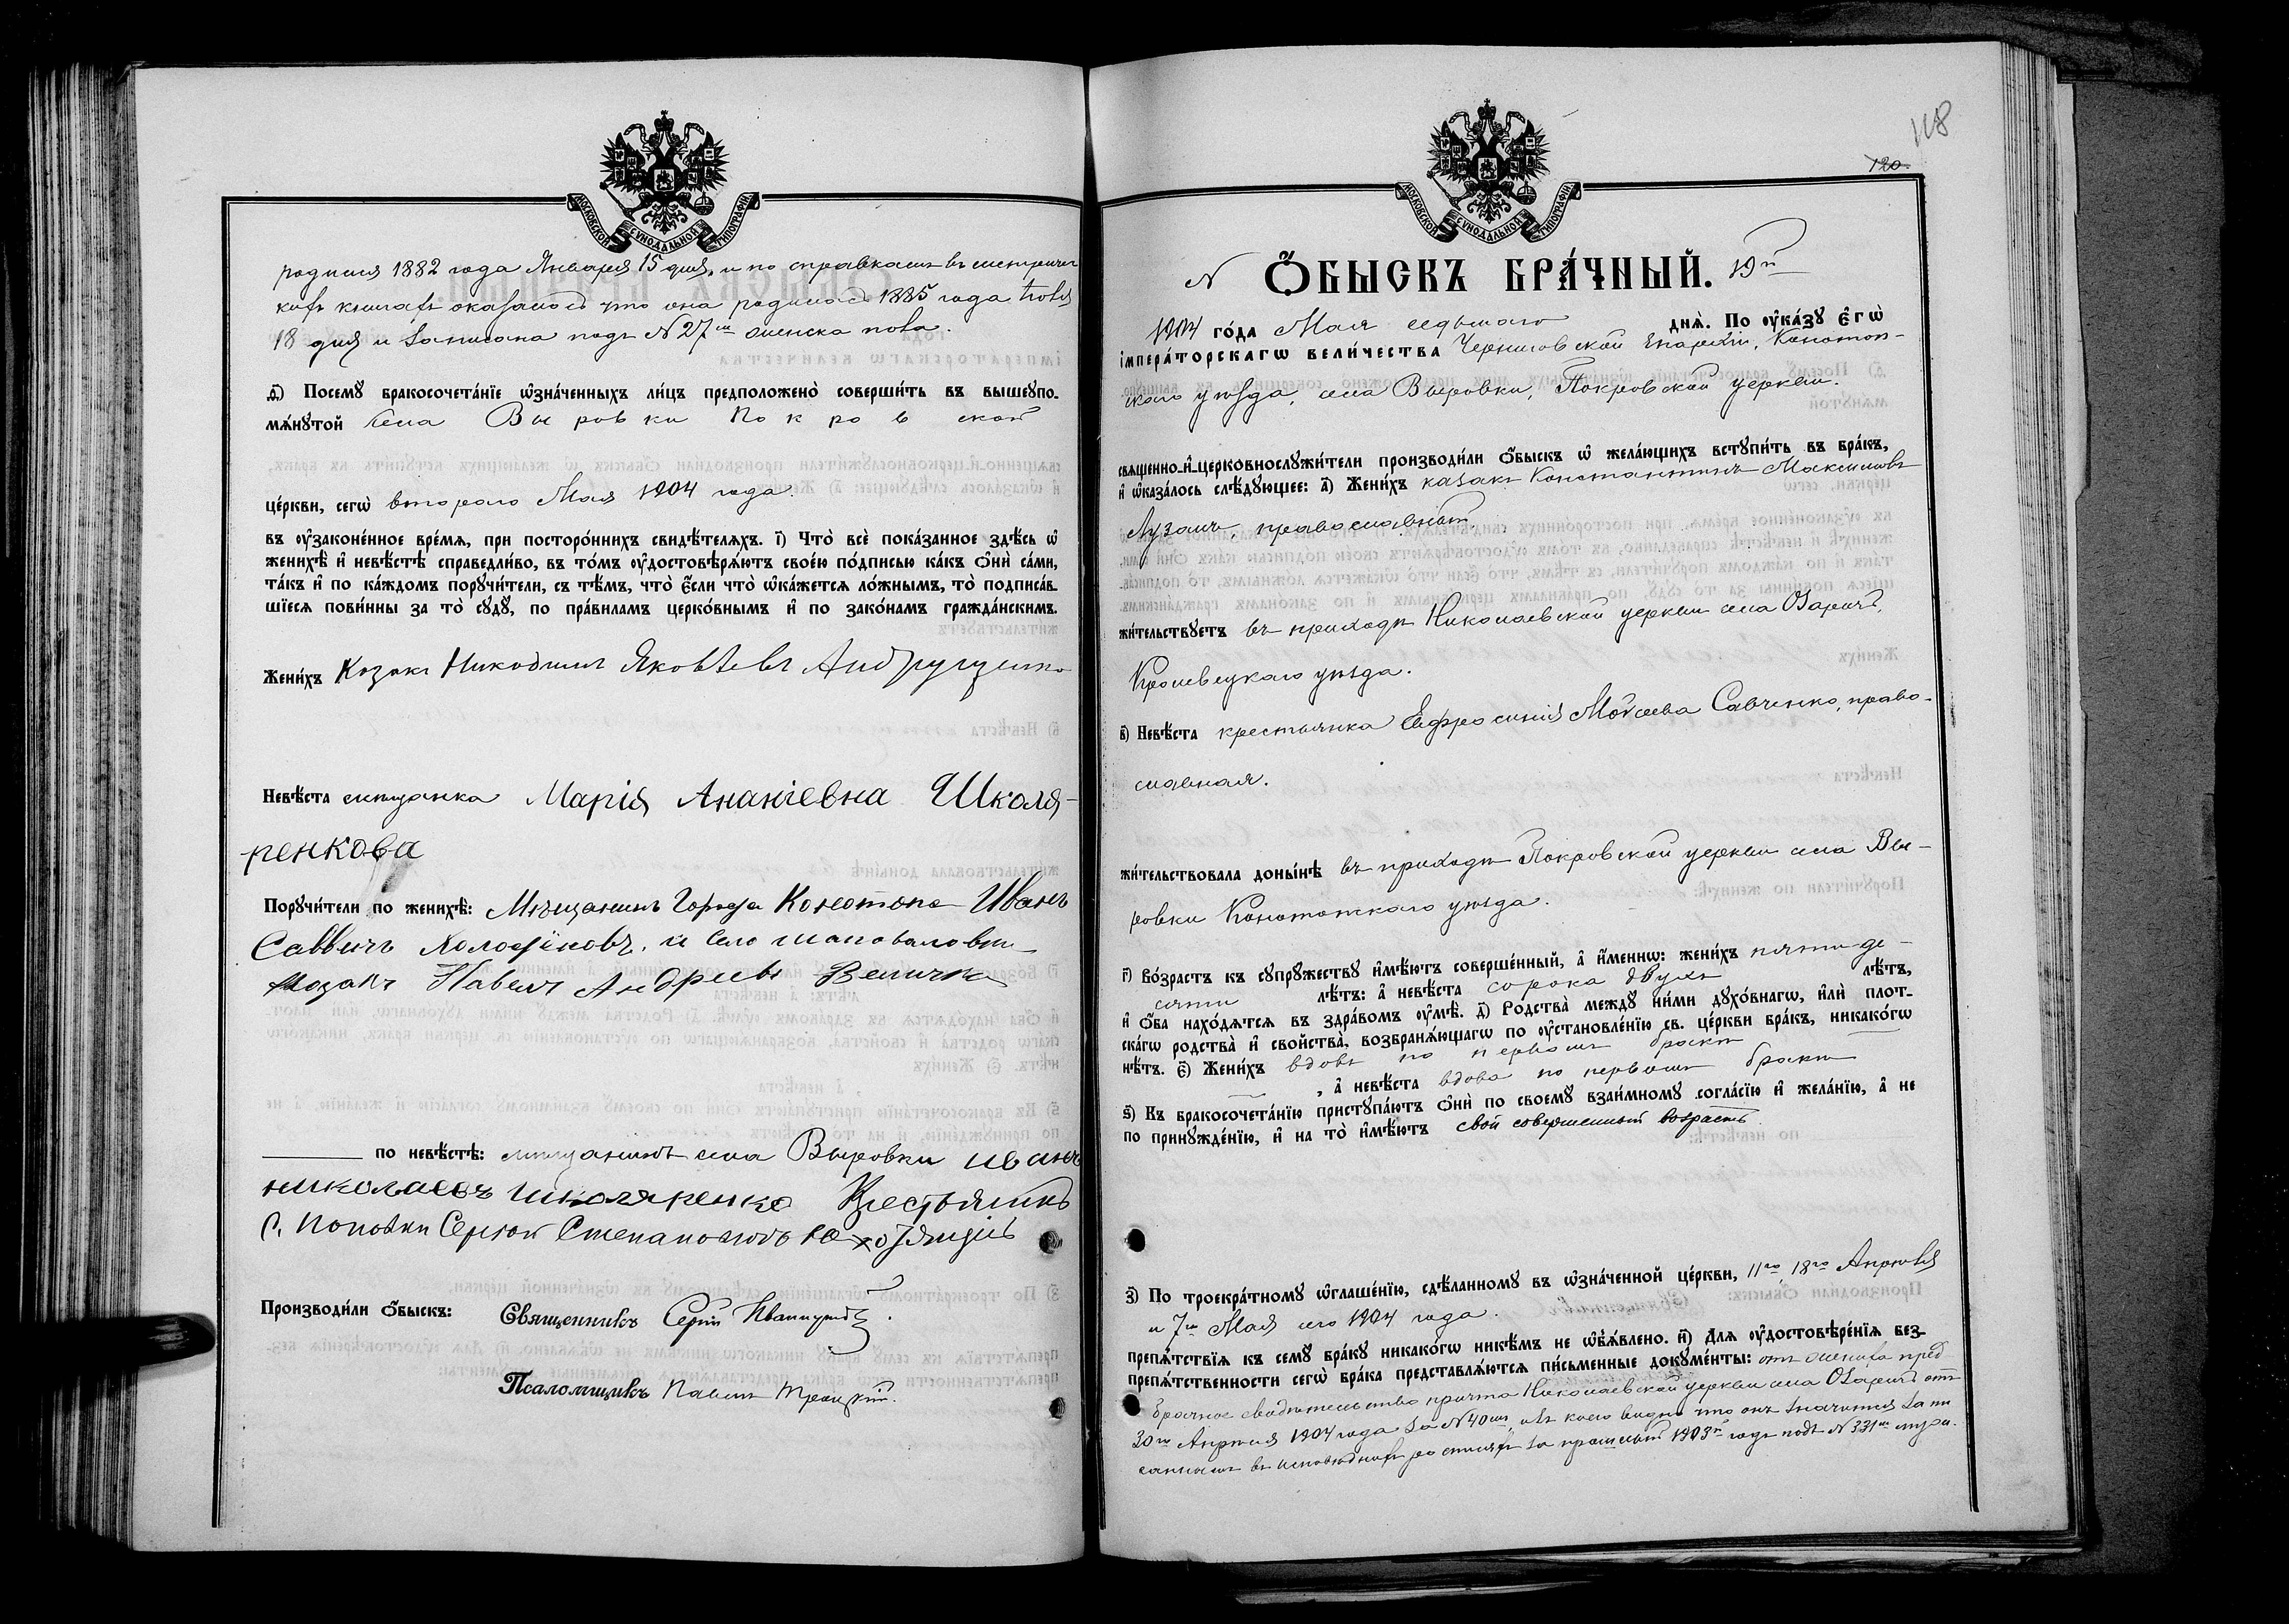 МОСКОВСКОЙ СѴНОДАЛЬНОЙ ТИПОГРАФІИ
родился 1882 года Января 15 дня, и по справкамъ въ метричес
кихъ книгахъ оказалось что она родилась 1885 года
18 дня и записана подъ N 27мъ женска пола.
д҃) Посемꙋ бракосочета́нїе ѡ҆зна́ченныхъ ли́цъ предположено̀ соверши́ть въ вышеꙋпо-
мѧ́нꙋтой села Выровки Покровской
це́ркви, сегѡ̀ второго Мая 1904 года.
въ ᲂу҆зако́ненное вре́мѧ, при посторо́ннихъ свидѣ́телѧхъ. і҃) Что̀ всѐ пока́занное здѣ́сь ѡ҆
женихѣ̀ и҆ невѣ́стѣ справедли́во, въ то́мъ ᲂу҆достовѣрѧ́ютъ свое́ю по́дписью ка́къ ѻ҆нѝ са́ми,
та́къ и҆ по ка́ждомъ порꙋчи́тели, съ тѣ́мъ, что̀ є҆́сли что̀ ѡ҆ка́жетсѧ ло́жнымъ, то̀ подписа́в-
шїесѧ пови́нны за то̀ сꙋдꙋ̀, по пра́виламъ церко́внымъ и҆ по зако́намъ гражда́нскимъ.
Жени́хъ Козакъ Никодимъ Яковлевъ Андрущенко
Невѣ́ста мещанка Марія Ананіевна Школя-
ренкова
Порꙋчи́тели по женихѣ̀: Мѣщанинъ Города Конотопа Иванъ
Саввичъ и Село Шаповаловки
Козакъ Павелъ Андреевъ Величко
по невѣ́стѣ: мещанинъ села Выровки иванъ
николаевъ школяренко Крестьянинъ
С. Поповки Сергей Степановичъ
Производи́ли ѻ҆́быскъ: Священникъ Сергій
Псаломщикъ Павелъ Троицкій.
118
120.
МОСКОВСКОЙ СѴНОДАЛЬНОЙ ТИПОГРАФІИ
N Ѻ҆́БЫСКЪ БРА́ЧНЫЙ. 19й
1904 го́да Мая седьмого днѧ̀. По ᲂу҆ка́зꙋ є҆гѡ̀
і҆мпера́торскагѡ вели́чества Черниговской Епархіи, Конотоп-
скаго уѣзда, села Выровки, Покровской церкви.
свѧще́нно-и҆-церковнослꙋжи́тели производи́ли ѻ҆́быскъ ѡ҆ жела́ющихъ встꙋпи́ть въ бра́къ,
и҆ ѡ҆каза́лось слѣ́дꙋющее: а҃) Жени́хъ казакъ Константинъ Максимовъ
Лузанъ, православный.
жи́тельствꙋетъ въ приходѣ Николаевской церкви села Озаричъ,
Кролевецкаго уѣзда.
в҃) Невѣ́ста крестьянка Евфросинія Моѵсеева Савченко, право-
славная.
жи́тельствовала доны́нѣ въ приходѣ Покровской церкви села Вы-
ровки Конотопскаго уѣзда.
г҃) Во́зрастъ къ сꙋпрꙋ́жествꙋ и҆мѣ́ютъ соверше́нный, а҆ и҆́меннѡ: жени́хъ пяти-де-
сяти лѣ́тъ: а҆ невѣ́ста сорока двухъ лѣ́тъ,
и҆ ѻ҆́ба нахо́дѧтсѧ въ здра́вомъ ᲂу҆мѣ̀. д҃) Родства̀ междꙋ̀ ни́ми дꙋхо́внагѡ, и҆лѝ плот-
ска́гѡ родства̀ и҆ сво́йства̀, возбранѧ́ющагѡ по ᲂу҆становле́нїю св. це́ркви бра́къ, никако́гѡ
нѣ́тъ. є҃) Жени́хъ вдовъ по первомъ бракѣ
, а҆ невѣ́ста вдова по первомъ бракѣ
ѕ҃) Къ бракосочета́нїю пристꙋпа́ютъ ѻ҆нѝ по своемꙋ̀ взаи́мномꙋ согла́сїю и҆ жела́нїю, а҆ не
по принꙋжде́нїю, и҆ на то̀ и҆мѣ́ютъ свой совершенный возрастъ.
з҃) По троекра́тномꙋ ѡ҆глаше́нїю, сдѣ́ланномꙋ въ ѡ҆зна́ченной це́ркви, 11го, 18го Апрѣля
и 7го Мая сего 1904 года.
препѧ́тствїѧ къ семꙋ̀ бра́кꙋ никако́гѡ никѣ́мъ не ѡ҆б̾ѧ́влено. и҃) Длѧ ᲂу҆достовѣре́нїѧ без-
препѧ́тственности сегѡ̀ бра́ка представлѧ́ютсѧ пи́сьменные докꙋме́нты: отъ жениха пред-
брачное свидѣтельство причта Николаевской церкви села Озаричъ отъ
30го Апрѣля 1904 года за N 40мъ, изъ коего видно что онъ значится запи
саннымъ въ исповѣдной росписи за прошлый 1903й годъ подъ N 331мъ муж.